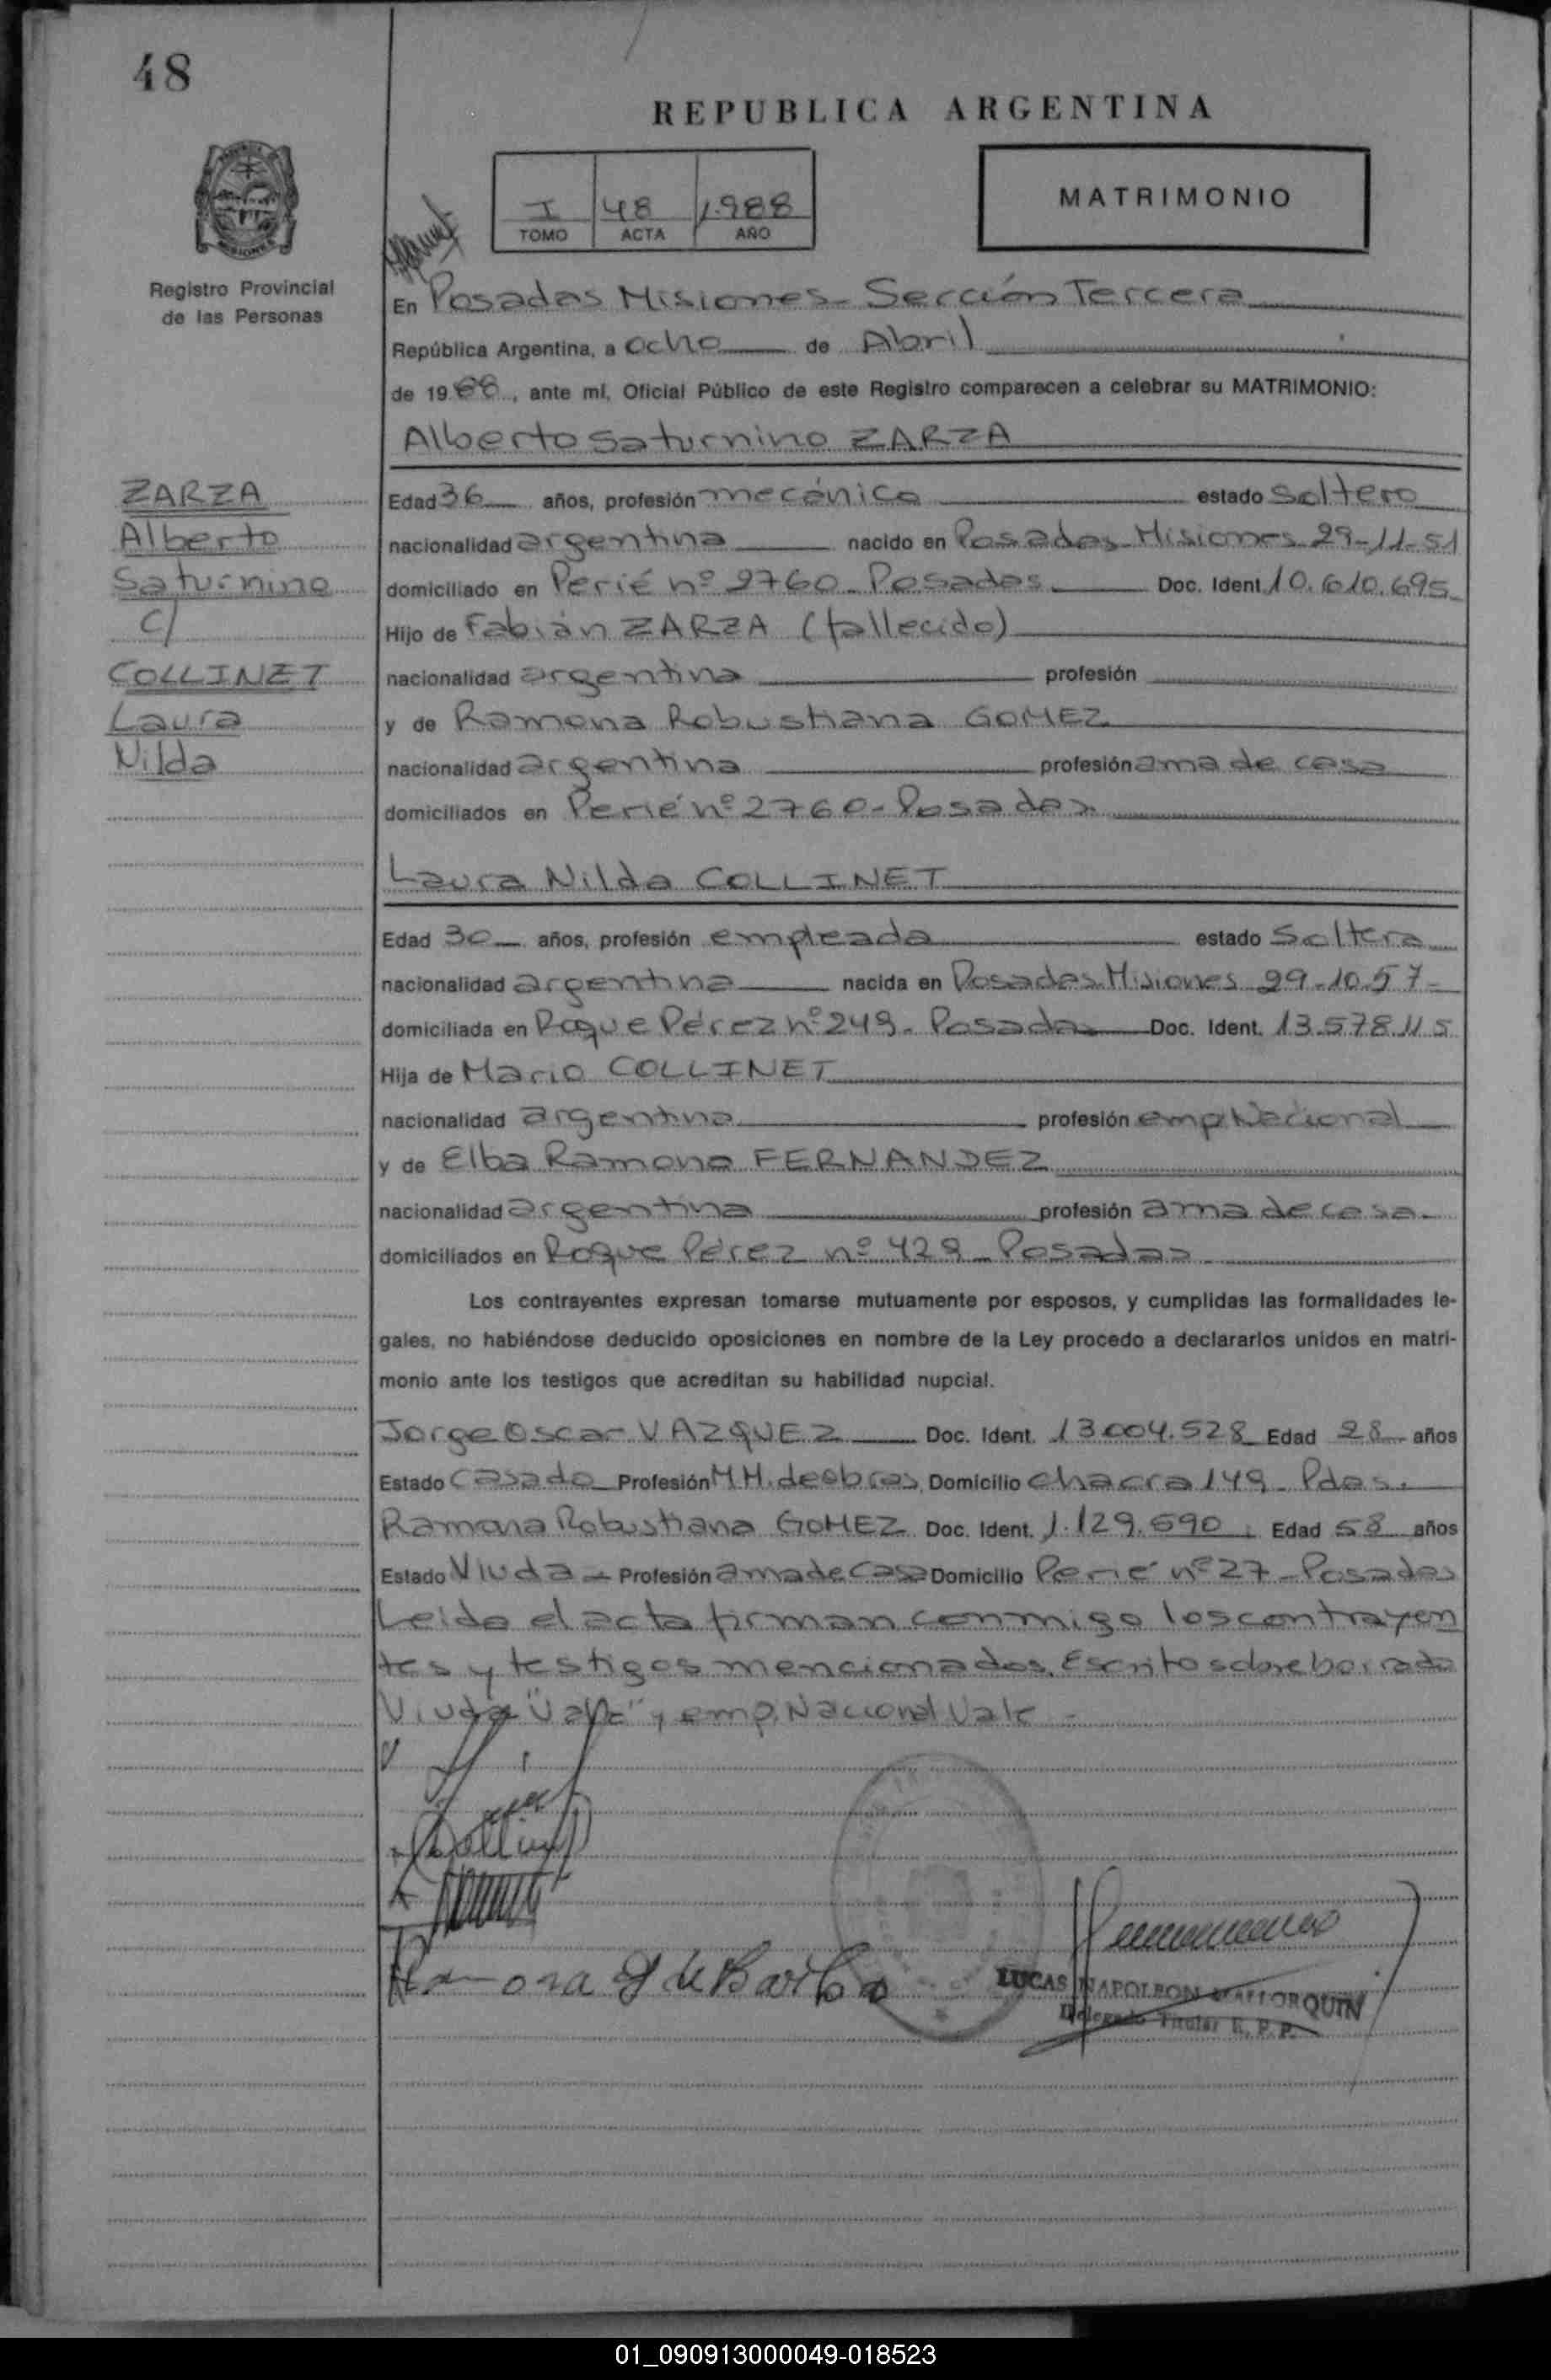 48
REPUBLICA ARGENTINA
I 48 1.988
TOMO ACTA AÑO
MATRIMONIO
Registro Provincial
de las Personas
En Posadas Misiones - Sección Tercera
República Argentina, a ocho de Abril
de 1988, ante mí, Oficial Público de este Registro comparecen a celebrar su MATRIMONIO:
Alberto Saturnino ZARZA
ZARZA
Alberto
Saturnino
C/
COLLINET
Laura
Nilda
Edad 36 años, profesión mecánico estado Soltero
nacionalidad argentina nacido en Posadas Misiones 29-11-51
domiciliado en Perié nº 2760 - Posadas Doc. Ident. 10.610.695
Hijo de Fabián ZARZA (fallecido)
nacionalidad argentina profesión
y de Ramona Robustiana GOMEZ
nacionalidad argentina profesión ama de casa
domiciliados en Perié nº 2760 - Posadas
Laura Nilda COLLINET
Edad 30 años, profesión empleada estado Soltera
nacionalidad argentina nacida en Posadas Misiones 29-10-57-
domiciliada en Roque Pérez nº 249 - Posadas Doc. Ident. 13.578.115
Hija de Mario COLLINET
nacionalidad argentina profesión emp Nacional
y de Elba Ramona FERNANDEZ
nacionalidad argentina profesión ama de casa
domiciliados en Roque Pérez nº 429 - Posadas
Los contrayentes expresan tomarse mutuamente por esposos, y cumplidas las formalidades le-
gales, no habiéndose deducido oposiciones en nombre de la Ley procedo a declararlos unidos en matri-
monio ante los testigos que acreditan su habilidad nupcial.
Jorge Oscar VAZQUEZ Doc. Ident. 13.004.528 Edad 28 años
Estado Casado Profesión M.M. de obras Domicilio chacra 149 - Pdas.
Ramona Robustiana GOMEZ Doc. Ident. 1.129.690 Edad 58 años
Estado Viuda Profesión ama de casa Domicilio Perié nº 27 - Posadas
Leido el acta firman conmigo los contrayen
tes y testigos mencionados. Escrito sobre borrado
Viuda "Vale", emp. Nacional Vale -
Ramona G de Barbo
LUCAS NAPOLEON MALLORQUIN
Delegado Titular R. P. P.
01_090913000049-018523